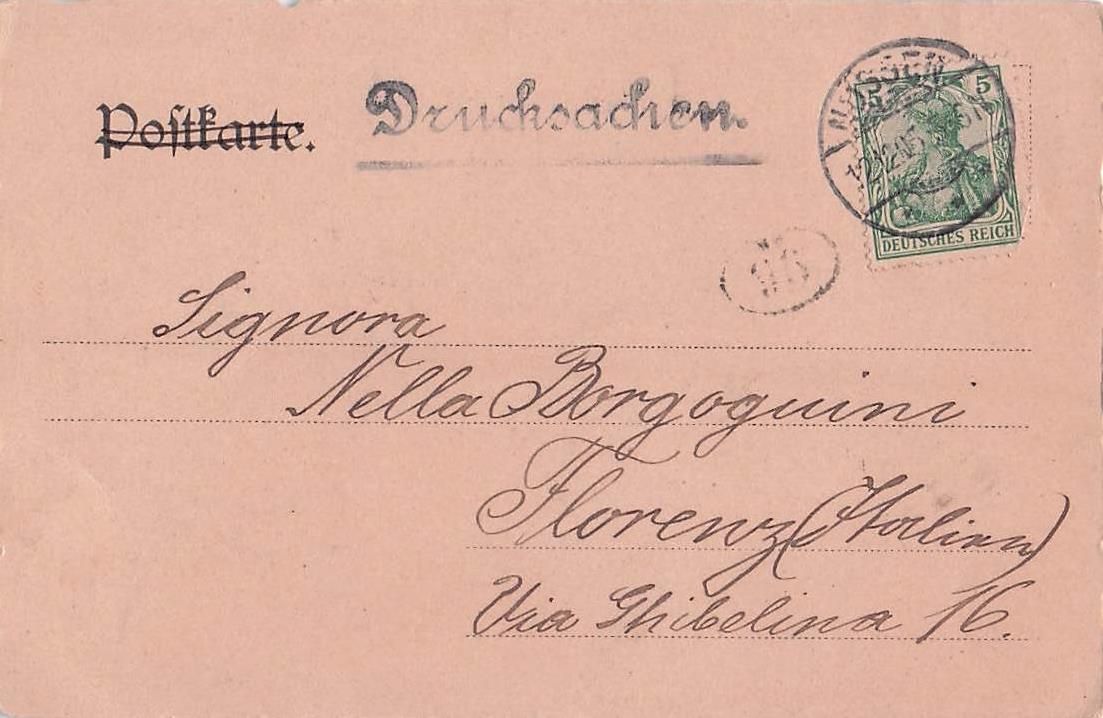 Postkarte. Drucksachen.
5
NOSSEN
12.05
DEUTSCHES REICH
96
Signora
Nella Borgoguini
Florenz (Italien)
Via Ghibelina 16.